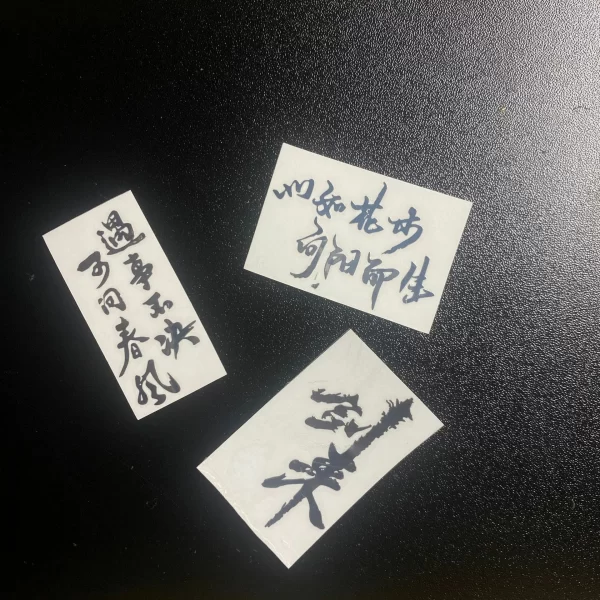 遇事不决
可问春风
心如花木
向阳而生
剑来